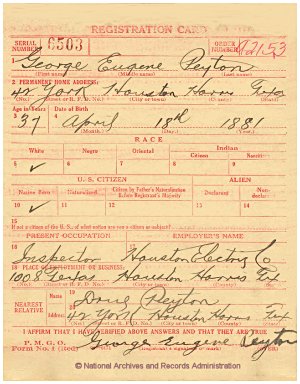 REGISTRATION CARD
SERIAL NUMBER 6503 ORDER NUMBER A2153
George Eugene Peyton
(First name) (Middle name) (Last name)
2 PERMANENT HOME ADDRESS:
42 York Houston Harris Tex
(No.) (Street or R. F. D. No.) (City or town) (County) (State)
Age in Years Date of Birth
37 April 18th 1881
(Month.) (Day.) (Year.)
RACE
White Negro Oriental Indian
Citizen Noncitizen
5 ✓ 6 7 8 9
U. S. CITIZEN ALIEN
Native Born Naturalized Citizen by Father's Naturalization Before Registrant's Majority Declarant Non-declarant
10 ✓ 11 12 13 14
15
If not a citizen of the U. S., of what nation are you a citizen or subject?
PRESENT OCCUPATION EMPLOYER'S NAME
16 17
Inspector Houston Electric Co
18 PLACE OF EMPLOYMENT OR BUSINESS:
Houston Harris Tex
(No.) (Street or R. F. D. No.) (City or town) (County) (State)
NEAREST RELATIVE
Name 19 Peyton
Address 20 42 York Houston Harris Tex
(No.) (Street or R. F. D. No.) (City or town) (County) (State)
I AFFIRM THAT I HAVE VERIFIED ABOVE ANSWERS AND THAT THEY ARE TRUE
P. M. G. O.
Form No. 1 (Red) George Eugene Peyton
© National Archives and Records Administration